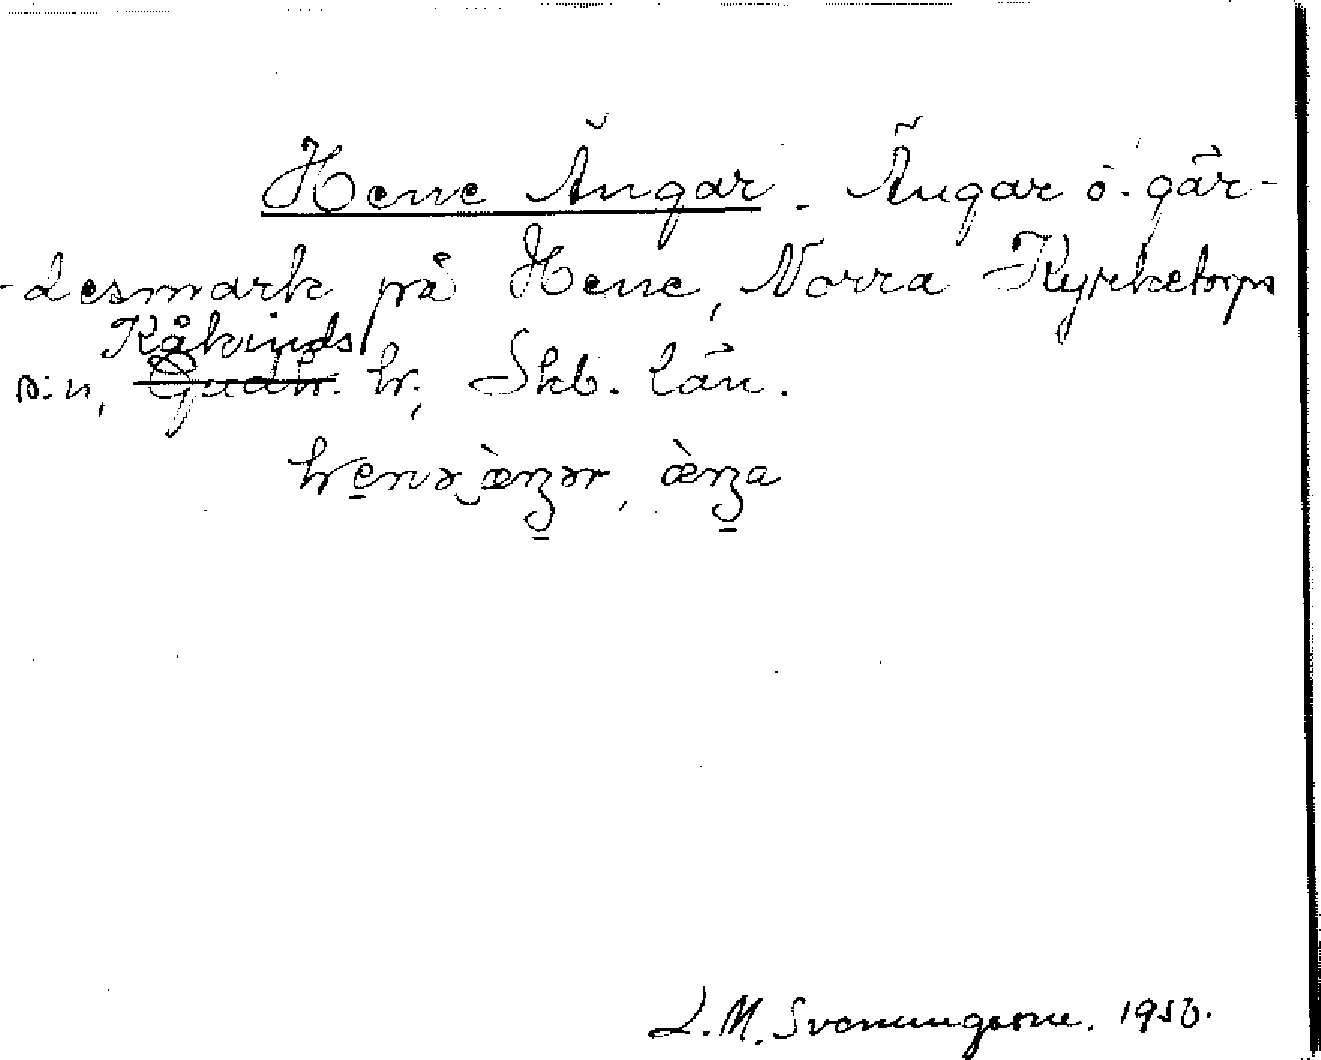 Hene Ängar. Ängar o. gär-
-desmark på Hene, Norra Kyrketorps
Kåkinds
s:n, Gudh. h., Skb. län.
L. M. Svenungsson. 1950.